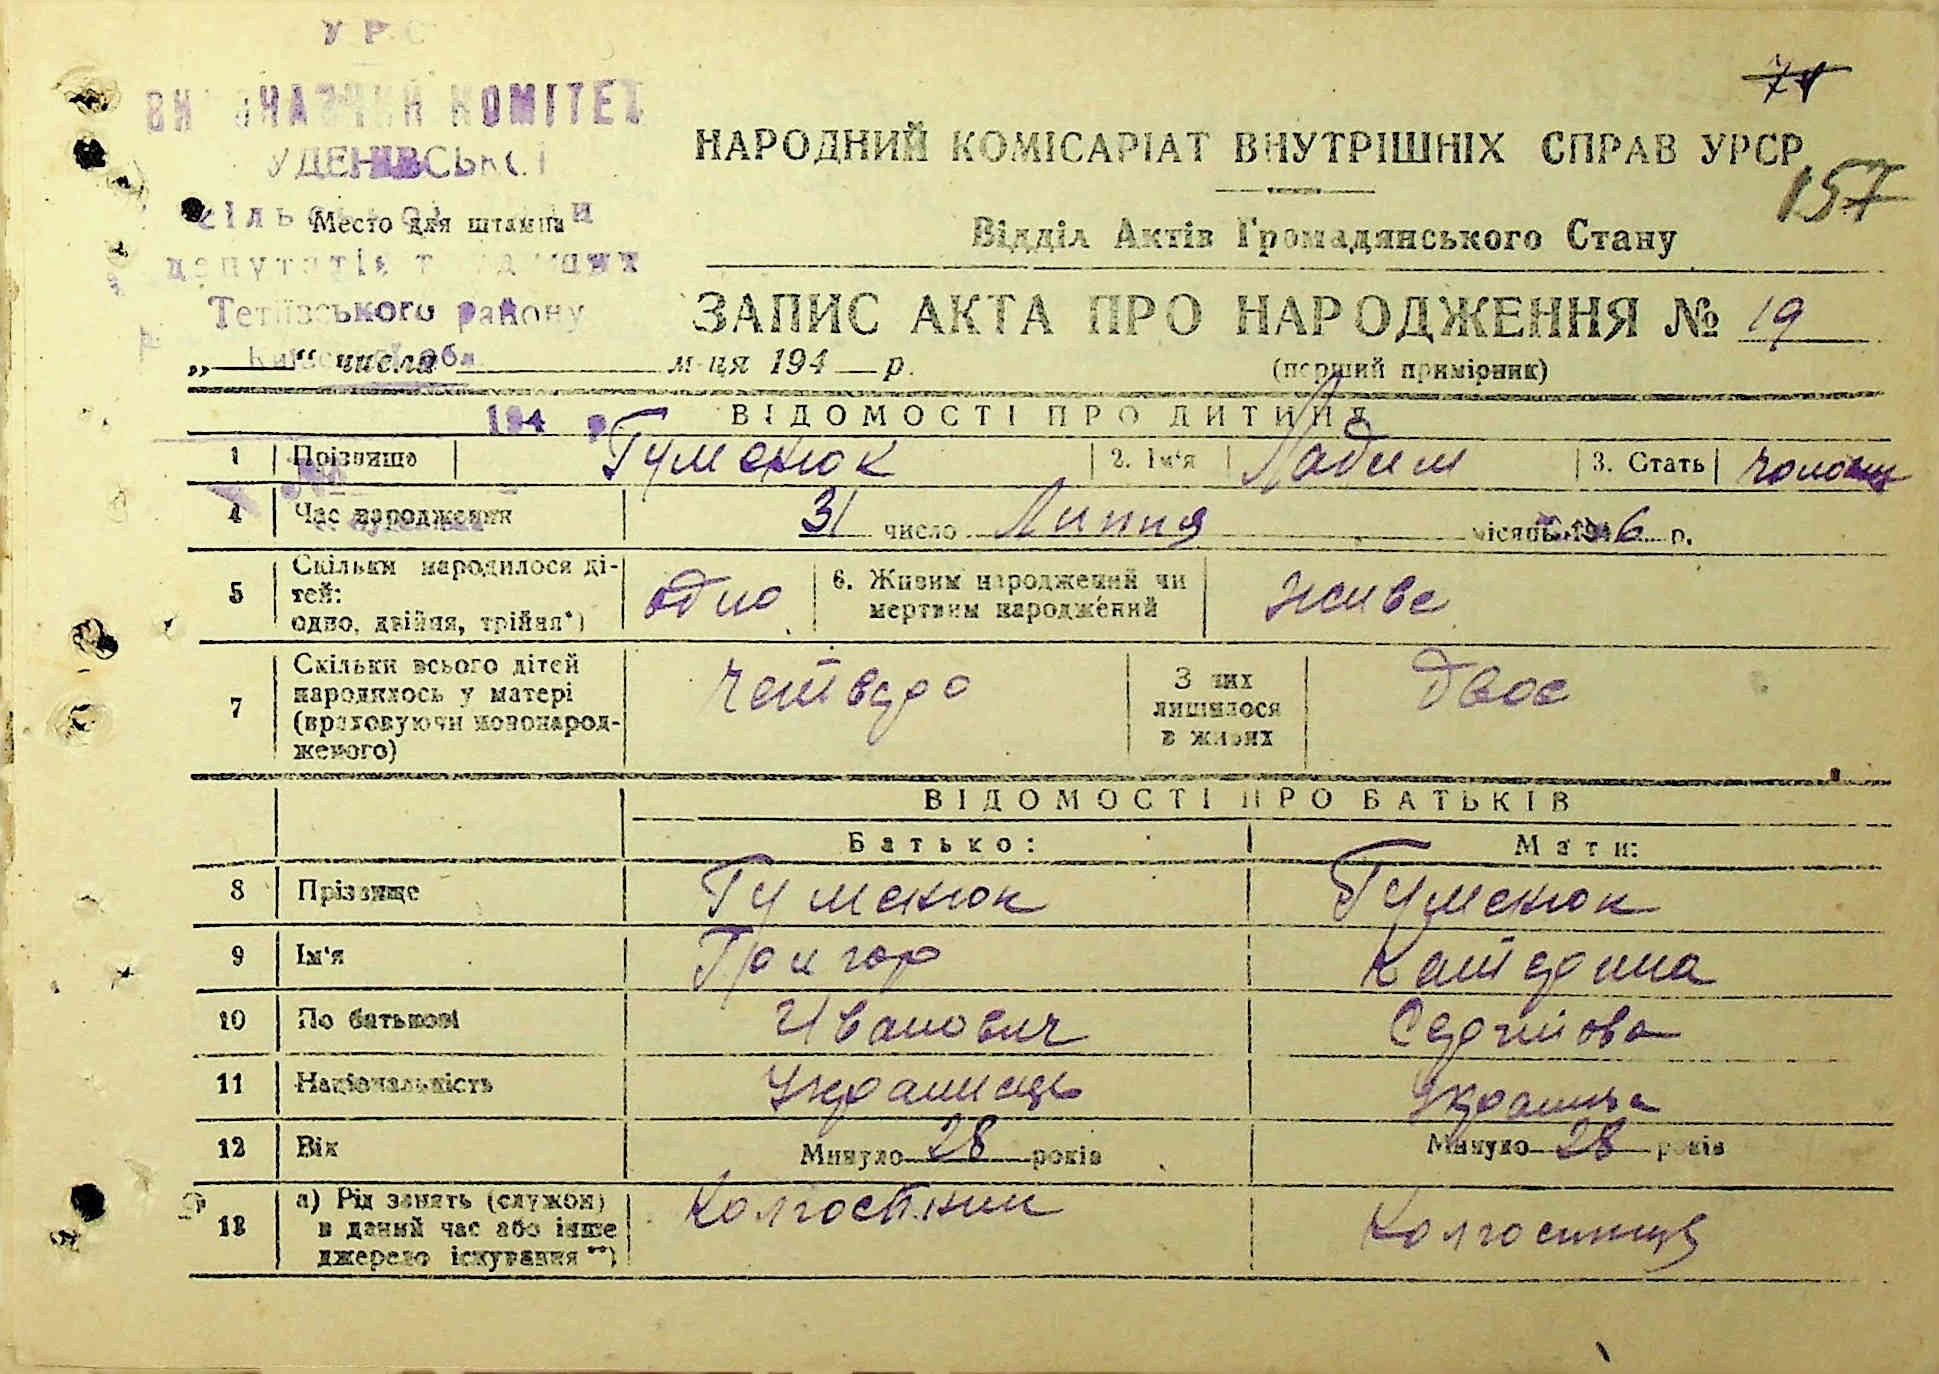 УРС
ВИКОНАВЧИЙ КОМІТЕТ
УДЕНІВСЬКОЇ
сільської
Место для штампа
депутатів
Тетіївського району
обл.
„ “ числа м-ця 194 р.
194 р.
№
74
НАРОДНИЙ КОМІСАРІАТ ВНУТРІШНІХ СПРАВ УРСР
157
Відділ Актів Громадянського Стану
ЗАПИС АКТА ПРО НАРОДЖЕННЯ № 19
(перший примірник)
ВІДОМОСТІ ПРО ДИТИНУ
1 Прізвище Гуменюк 2. Ім'я 3. Стать
4 Час народження 31 число Липня місяць 1946 р.
5 Скільки народилося ді-
тей:
одно, двійня, трійня*) одно 6. Живим народжений чи
мертвим народжений живе
7 Скільки всього дітей
народилось у матері
(враховуючи новонарод-
женого) Четверо З них
лишилося
в живих Двоє
ВІДОМОСТІ ПРО БАТЬКІВ
Батько: Мати:
8 Прізвище Гуменюк Гуменюк
9 Ім'я Григор Катерина
10 По батькові Иванович Сергіївна
11 Національність Украинець Украинка
12 Вік Минуло 28 років Минуло 28 років
13 а) Рід занять (служби)
в даний час або інше
джерело існування**) Колгоспник Колгоспниця